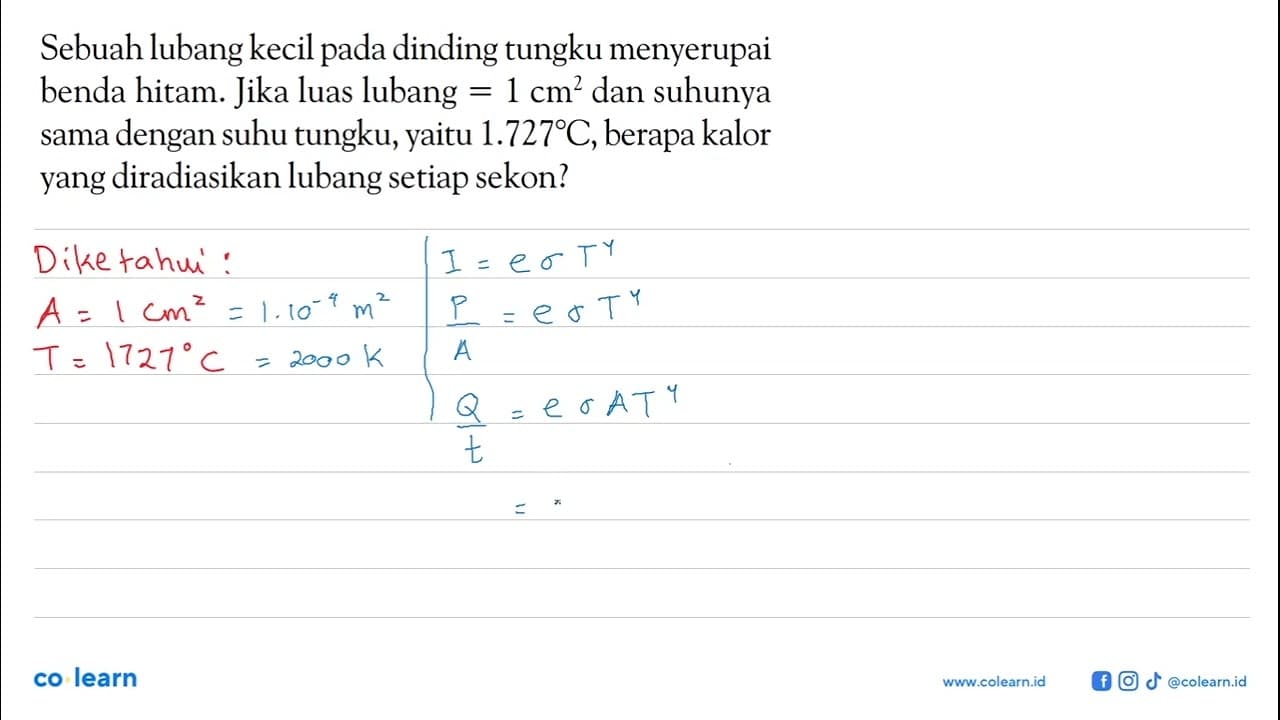 Sebuah lubang kecil pada dinding tungku menyerupai
benda hitam. Jika luas lubang = 1 cm² dan suhunya
sama dengan suhu tungku, yaitu 1.727°C, berapa kalor
yang diradiasikan lubang setiap sekon?
Diketahui :
A = 1 cm² = 1.10⁻⁴ m²
T = 1727°C = 2000 K
I = e σ T⁴
P/A = e σ T⁴
Q/t = e σ A T⁴
=
co learn
www.colearn.id
@colearn.id